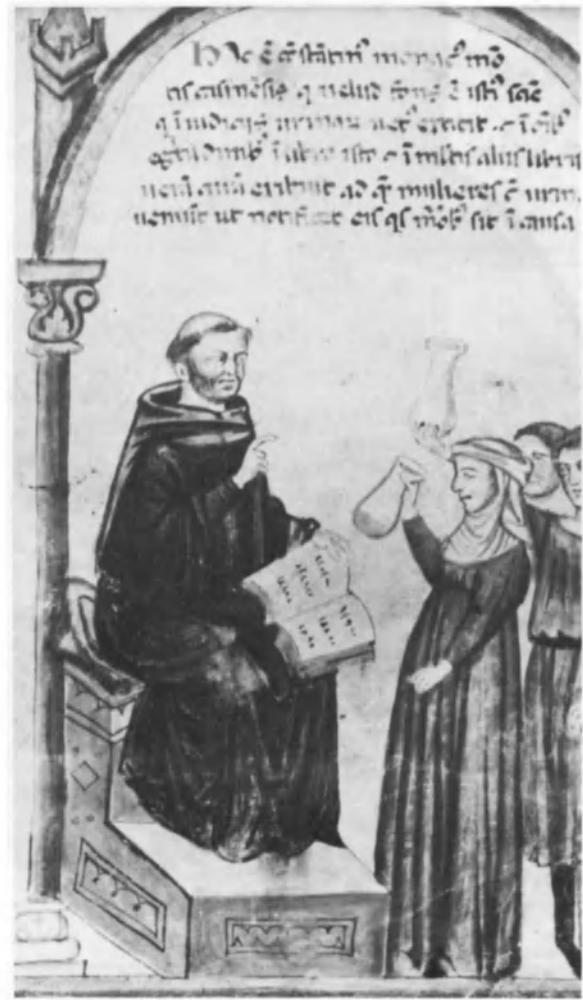 Hic ē cōstātin' monac' mō
tis casinēsis q uelud fons ē isti' sciē
q ī iudiciis urinar uer' ⁊ ī oīb'
egritudinib' ī libro isto ⁊ ī multis aliis libri
uerā curā exibuit ad q̄ mulieres c̄ urin
uenūt ut notificet eis q̄s morb' sit ī causa